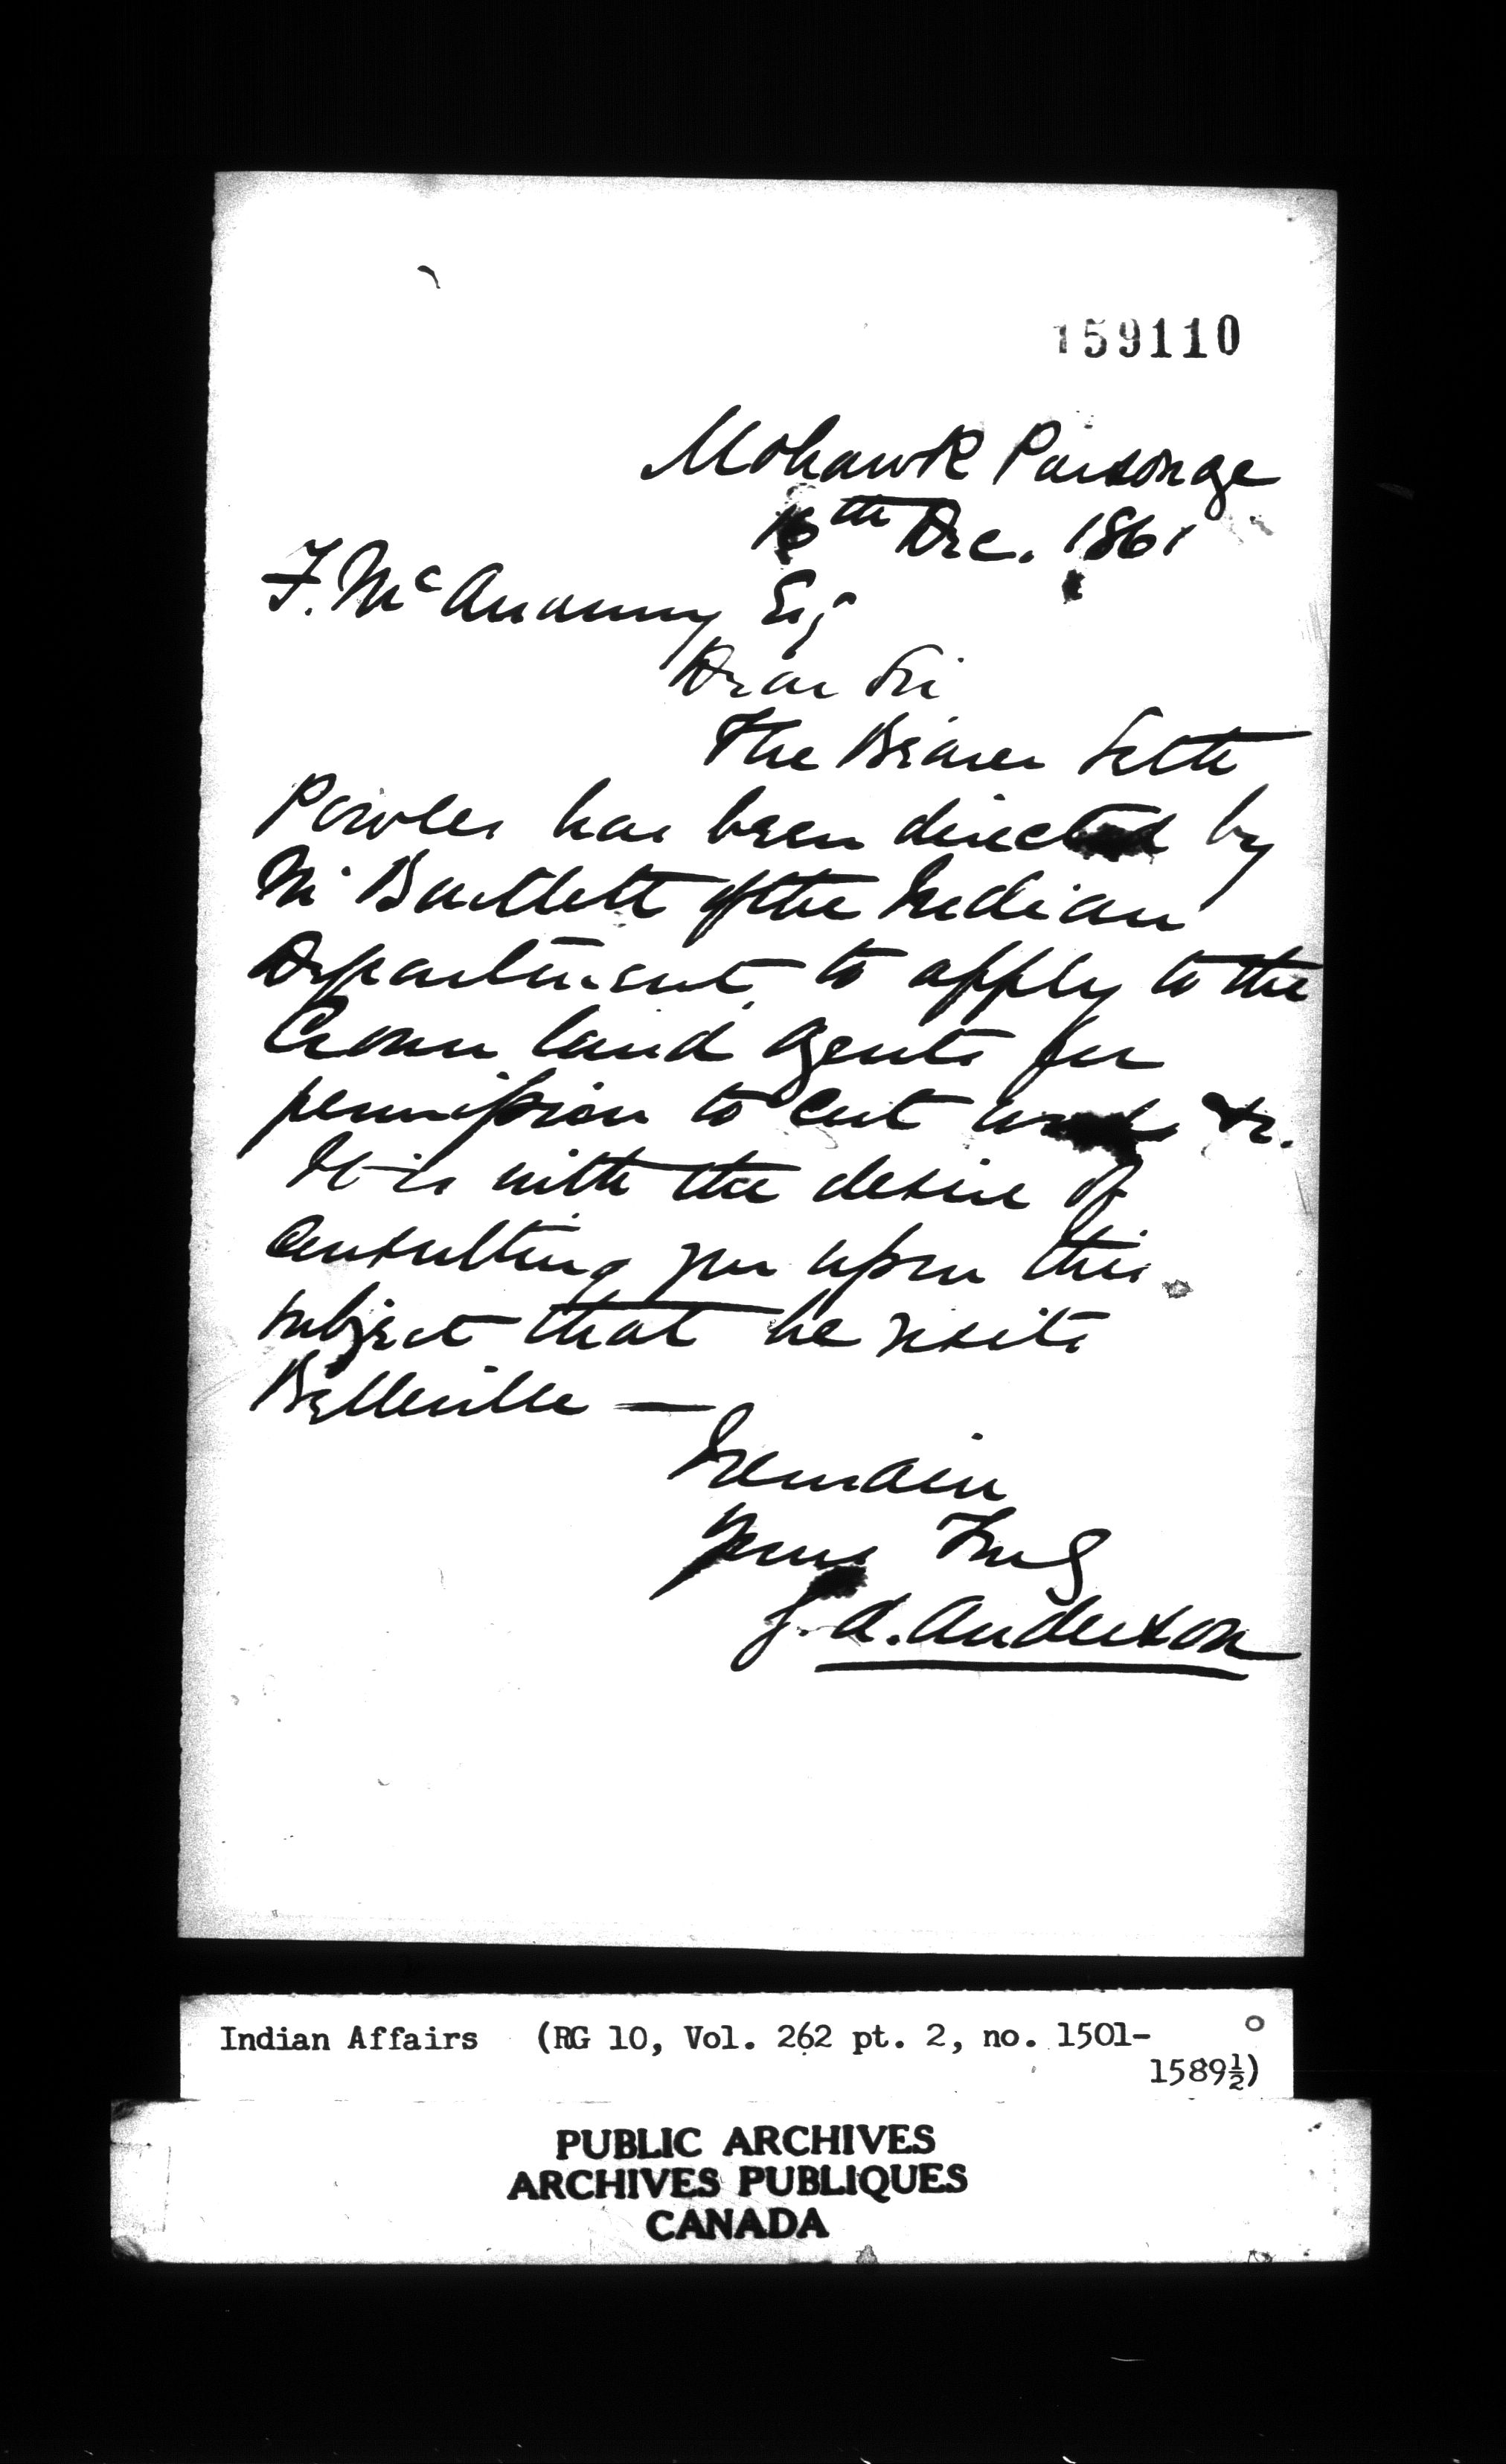 159110
Mohawk Parsonage
16th Dec. 1861
F. McAnanny Esq
Dear Sir
The Bearer Seth
Powles has been directed by
Mr Bartlett of the Indian
Department to apply to the
Crown land agents for
permission to cut wood &c.
It is with the desire of
consulting you upon this
subject that he visits
Belleville —
I remain
Yours Truly
J. A. Anderson
Indian Affairs (RG 10, Vol. 262 pt. 2, no. 1501-
1589½)
PUBLIC ARCHIVES
ARCHIVES PUBLIQUES
CANADA